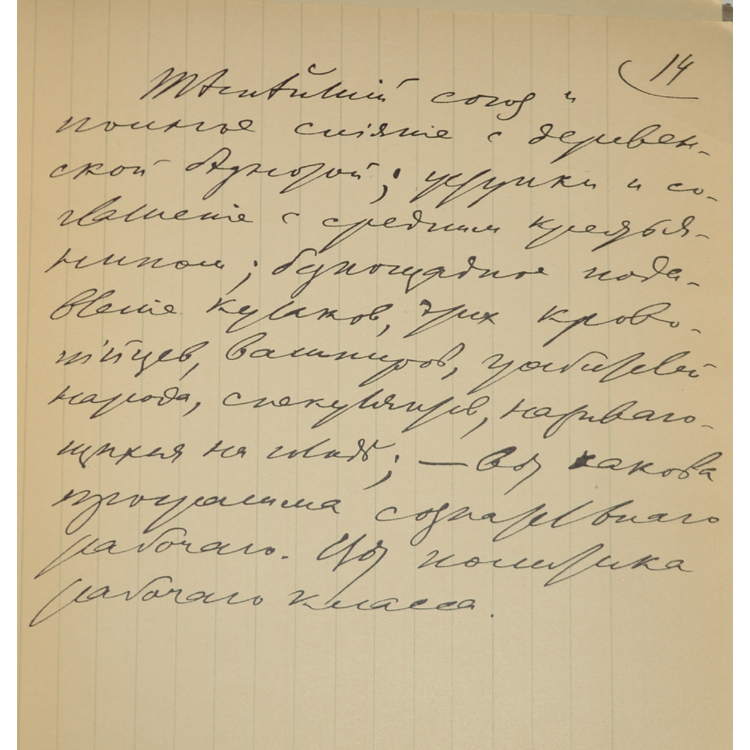 14
Теснейший союз и
полное слияние с деревен-
ской беднотой; уступки и со-
глашение с средним крестья-
нином; беспощадное пода-
вление кулаков, этих крово-
пийцев, вампиров, грабителей
народа, спекулянтов, наживаю-
щихся на голоде; — вот какова
программа сознательного
рабочего. Вот политика
рабочего класса.